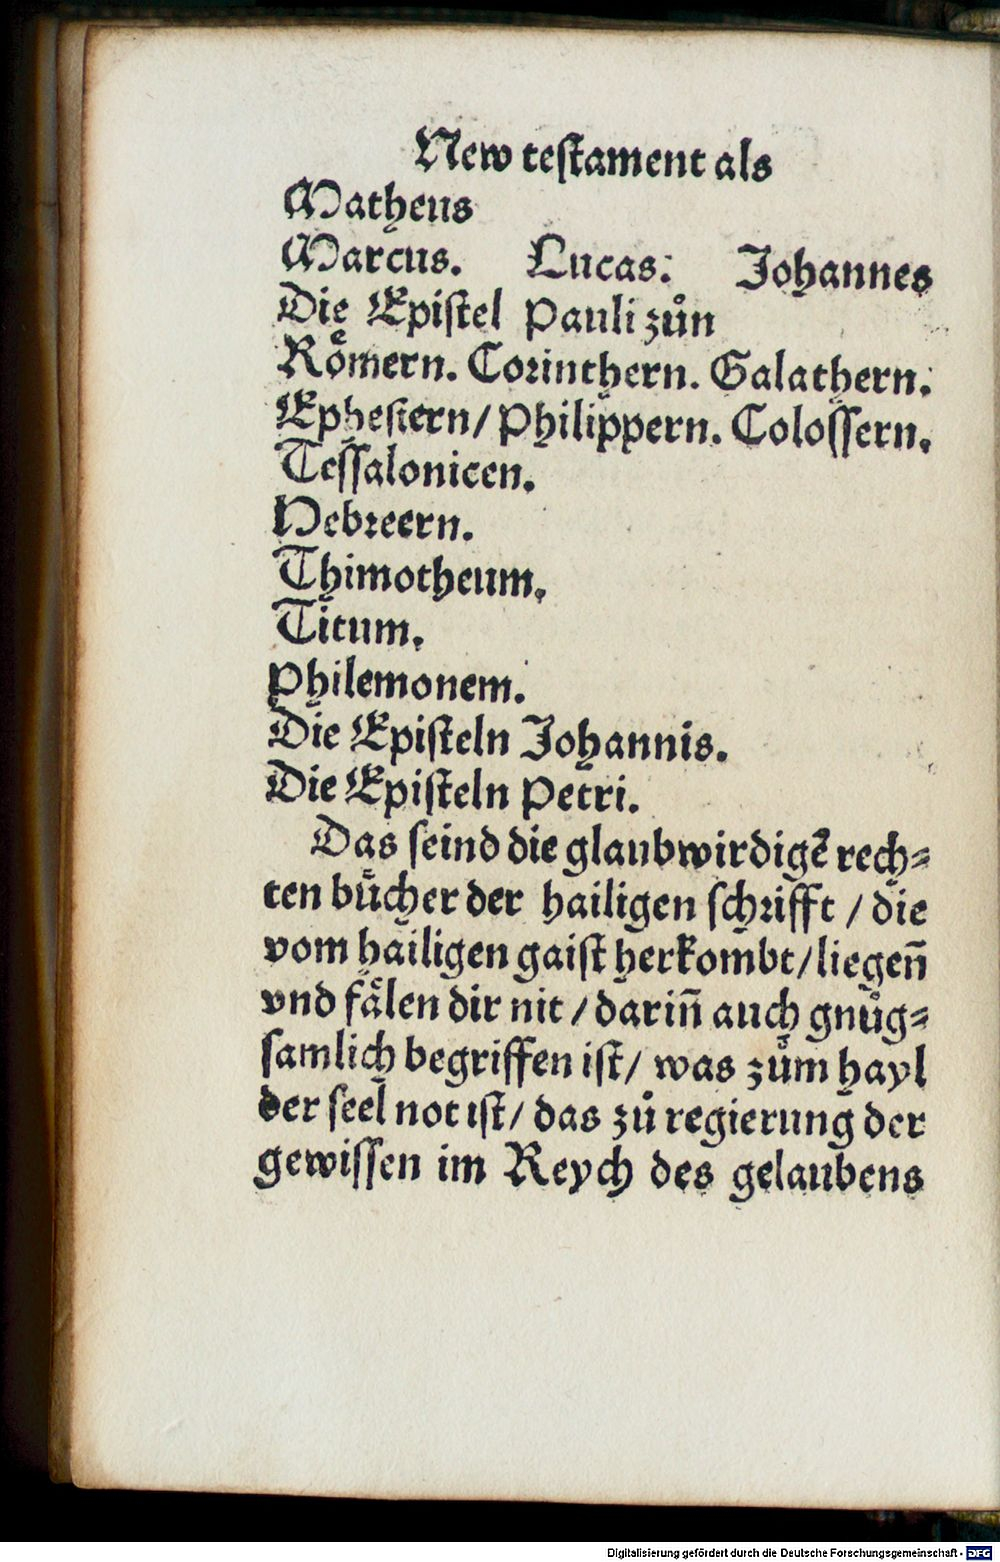 New teſtament als
Matheus
Marcus. Lucas. Johannes
Die Epiſtel Pauli zůn
Roͤmern. Corinthern. Galathern.
Epheſiern/ Philippern. Coloſſern.
Teſſalonicen.
Hebreern.
Thimotheum.
Titum.
Philemonem.
Die Epiſteln Johannis.
Die Epiſteln Petri.
Das ſeind die glaubwirdigē rech⸗
ten buͤcher der hailigen ſchrifft / die
vom hailigen gaiſt herkombt/ liegen̄
vnd faͤlen dir nit / darin̄ auch gnůg⸗
ſamlich begriffen iſt/ was zům hayl
der ſeel not iſt/ das zů regierung der
gewiſſen im Reych des gelaubens
Digitalisierung gefördert durch die Deutsche Forschungsgemeinschaft - DFG